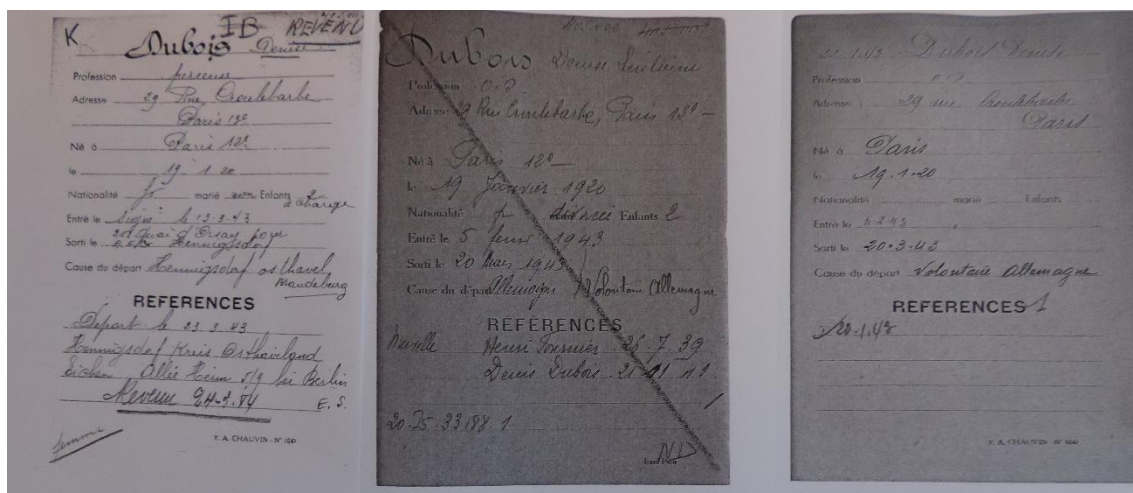 K IB REVENU
Dubois Denise
Profession
Adresse 29 Rue Croulebarbe
Paris 13e
Né à Paris 12e
le 19 1 20
Nationalité fr marié Enfants 2
à charge
Entré le signé le 13-3-43
quai d'Orsay pour
Sorti le Hennigsdorf
Cause du départ Hennigsdorf osthavel
Brandeburg
REFERENCES
Départ le 23 3 43
Hennigsdorf Kreis Osthaviland
Allée Heim 5/9 bei Berlin
Revenue 24-3-44 E. S.
femme
F. A. CHAUVIN - N° 1040
Dubois Denise
Profession o.s
Adresse 29 Rue Croulebarbe, Paris 13e -
Né à Paris 12e -
le 19 Janvier 1920
Nationalité fr divorcé Enfants 2
Entré le 5 fevri 1943
Sorti le 20 Mars 1943
Cause du départ Allemagne / Volontaire Allemagne
RÉFÉRENCES
Henri Fournier 26.7.39
Denis Dubois
20.75.33.188.1
1
ND
Dubois Denise
Profession o.s
Adresse 29 rue Croulebarbe
Paris
Né à Paris
le 19.1.20
Nationalité marié Enfants
Entré le 5-2-43
Sorti le 20.3.43
Cause du départ Volontaire Allemagne
RÉFÉRENCES 1
F. A. CHAUVIN - N° 1040